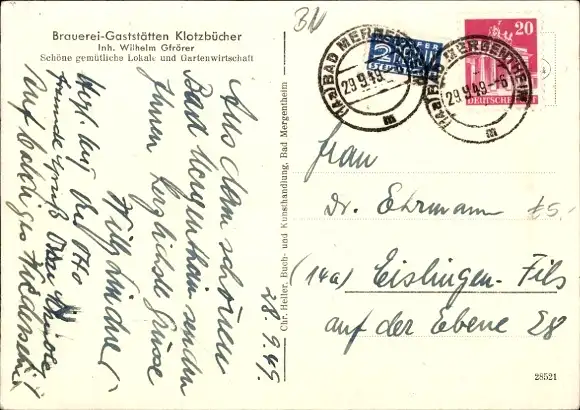 Brauerei-Gaststätten Klotzbücher
Inh. Wilhelm Gfrörer
Schöne gemütliche Lokale und Gartenwirtschaft
Aus dem schönen
Bad Mergentheim senden
Ihnen herzlichste Grüsse
Willi Lindner
Herzl.
auf baldiges Wiedersehn!
28.9.49.
Chr. Heller, Buch- und Kunsthandlung, Bad Mergentheim
BAD MERGENTHEIM
29.9.49
NOTOPFER
2 BERLIN
STEUERMARKE
(14a) BAD MERGENTHEIM
29.9.49.-6
20
DEUTSCHE POST
Frau
Dr. Ehrmann
£5,-
(14a) Eislingen-Fils
auf der Ebene 28
28521